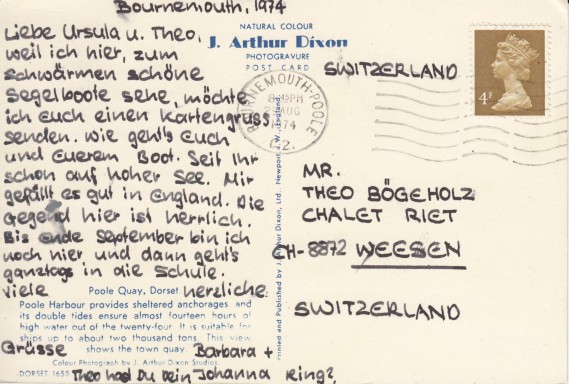 Bournemouth, 1974
Liebe Ursula u. Theo,
weil ich hier, zum
schwärmen schöne
Segelboote sehe, möchte
ich Euch einen Kartengruss
senden. Wie geht's Euch
und Euerem Boot. Seit Ihr
schon auf hoher See. Mir
gefällt es gut in England. Die
Gegend hier ist herrlich.
Bis ende September bin ich
noch hier und dann geht's
ganztags in die Schule.
Viele herzliche
Grüsse Barbara +
Johanna
Theo hast Du kein Ring?
NATURAL COLOUR
J. Arthur Dixon
PHOTOGRAVURE
POST CARD
Poole Quay, Dorset.
Poole Harbour provides sheltered anchorages and
its double tides ensure almost fourteen hours of
high water out of the twenty-four. It is suitable for
ships up to about two thousand tons. This view
shows the town quay.
Colour Photograph by J. Arthur Dixon Studios.
DORSET 1655
and Published by J. Arthur Dixon, Ltd. Newport, I.W., England.
BOURNEMOUTH-POOLE
AUG
1974
4P
SWITZERLAND
MR.
THEO BÖGEHOLZ
CHALET RIET
CH-8872 WEESEN
SWITZERLAND